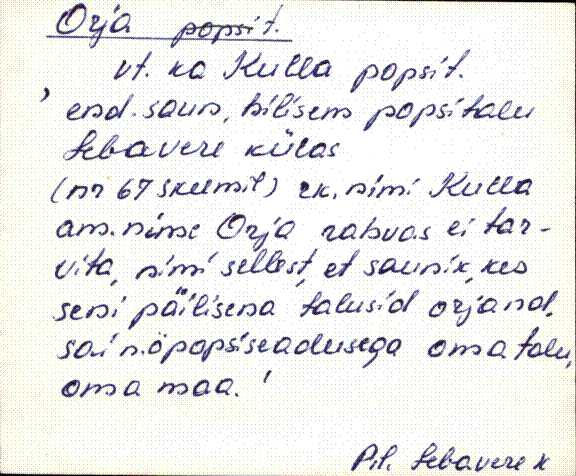 Orja popsit.
vt. ka Kulla popsit.
end. saun, hilisem popsitalu
Sebavere külas
(nr 67 skeemil) rk. nimi Kulla
am. nime Orja rahvas ei tar-
vita, nimi sellest, et saunik, kes
seni päilisena talusid orjand,
sai n.ö popsiseadusega oma talu,
oma maa.
Pil. Sebavere k